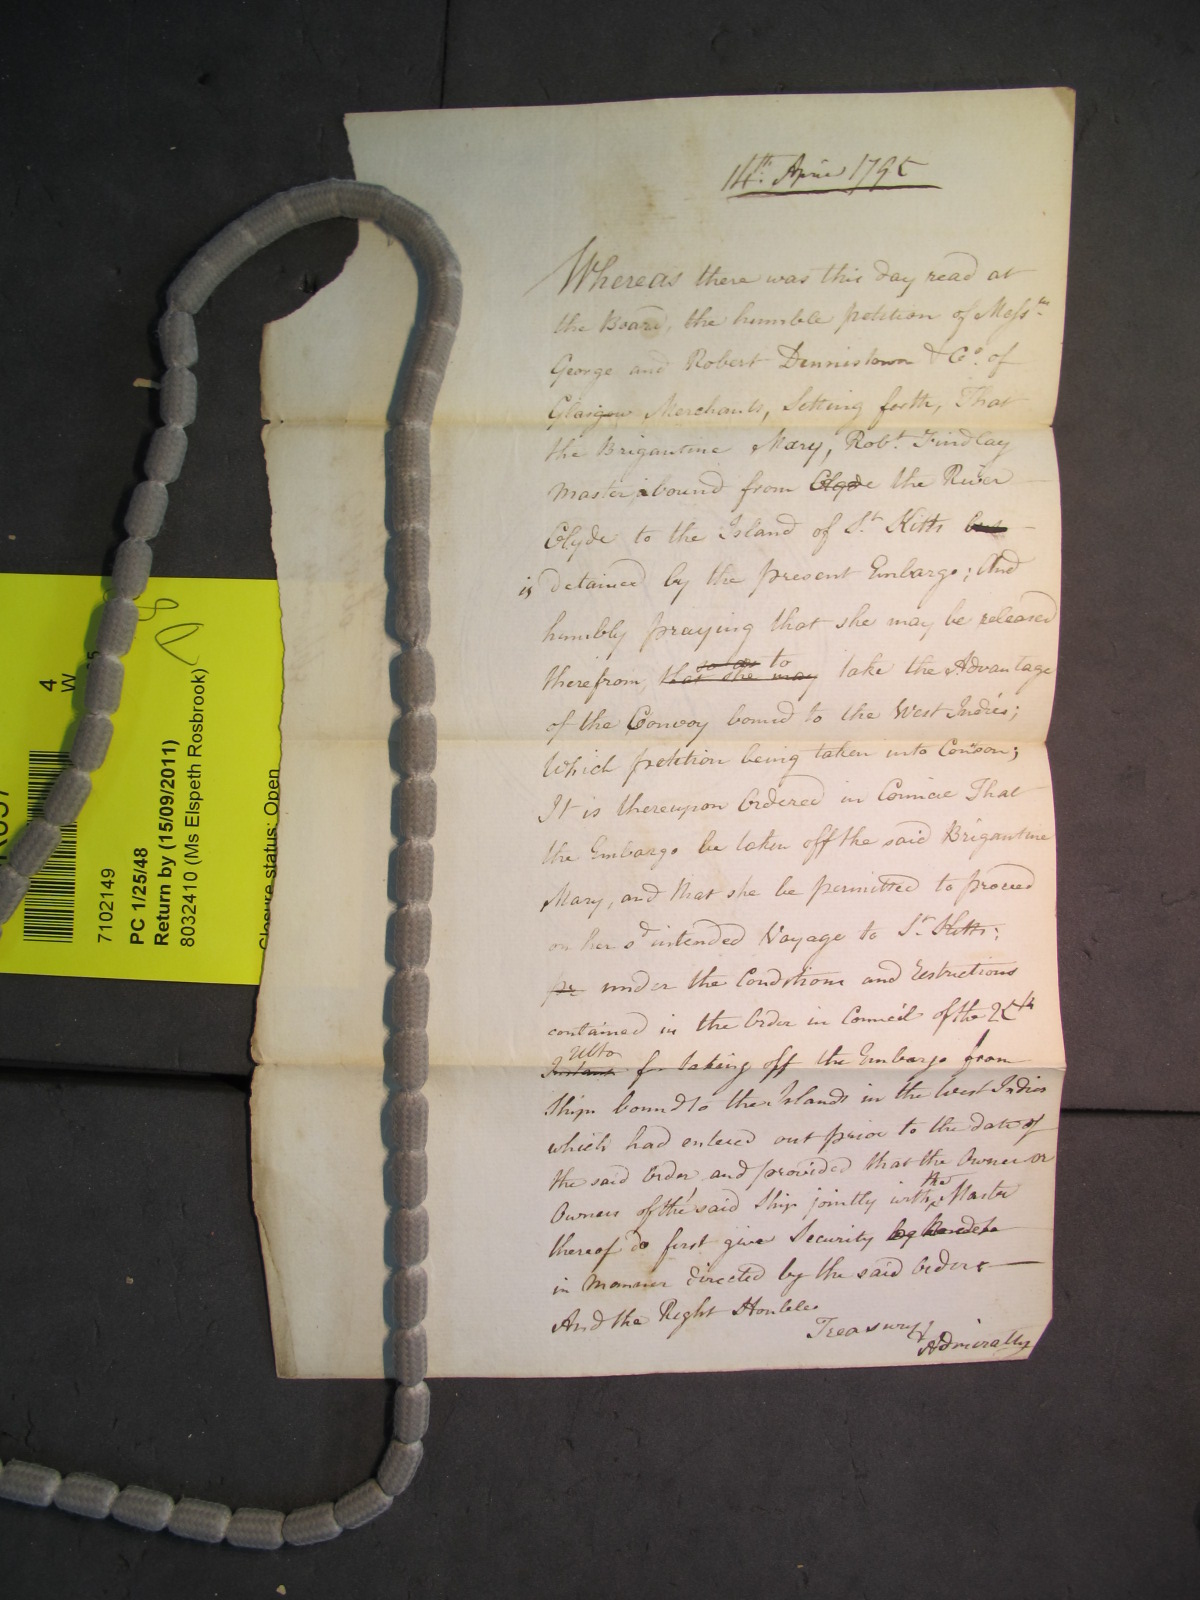 14th: April 1795
Whereas there was this day read at
the Board, the humble petition of Messrs.
George and Robert Dennistown & Co. of
Glasgow Merchants, Setting forth, That
the Brigantine Mary, Robt. Findlay
Master, bound from Clyde the River
Clyde to the Island of St. Kitts but
is detained by the present Embargo; And
humbly praying that she may be released
so as to
therefrom, that she may take the Advantage
of the Convoy bound to the West Indies;
Which petition being taken into Conson;
It is thereupon Ordered in Council That
the Embargo be taken off the said Brigantine
Mary, and that she be permitted to proceed
on her sd intended Voyage to St. Kitts;
pr under the Conditions and restrictions
contained in the Order in Council of the 25th
Ulto
Instant for taking off the Embargo from
Ships bound to the Islands in the West Indies
which had entered out prior to the date of
the said Order and provided that the Owner or
the
Owners of the said Ship jointly with Master
thereof do first give Security by
in manner directed by the said Order
And the Right Honble
Treasury
Admiralty
4
W
7102149
PC 1/25/48
Return by (15/09/2011)
8032410 (Ms Elspeth Rosbrook)
Closure status: Open